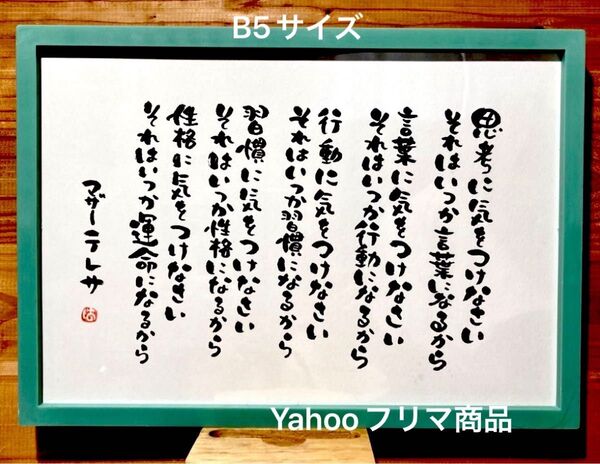 B5サイズ
思考に気をつけなさい
それはいつか言葉になるから
言葉に気をつけなさい
それはいつか行動になるから
行動に気をつけなさい
それはいつか習慣になるから
習慣に気をつけなさい
それはいつか性格になるから
性格に気をつけなさい
それはいつか運命になるから
マザーテレサ
Yahooフリマ商品